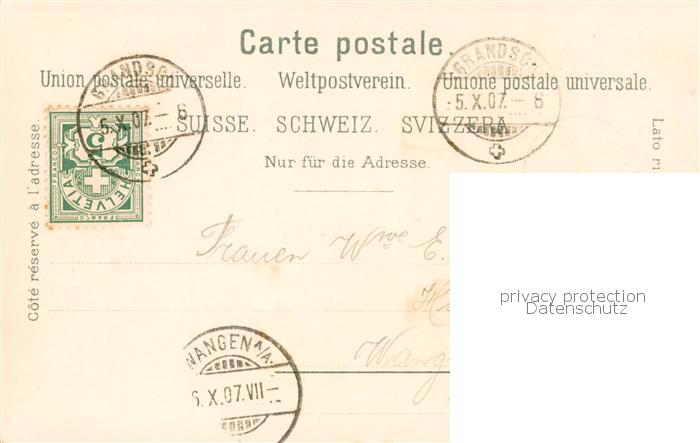 Carte postale.
Union postale universelle. Weltpostverein. Unione postale universale.
SUISSE. SCHWEIZ. SVIZZERA
Nur für die Adresse.
Côté réservé à l'adresse.
Lato ri
GRANDSO
5.X.07.– 8
GRANDSO
5.X.07.– 8
FRANCO
HELVETIA
FRANCO
Frauen Wwe E.
Wang
WANGEN A/A.
6.X.07.VII–
privacy protection
Datenschutz